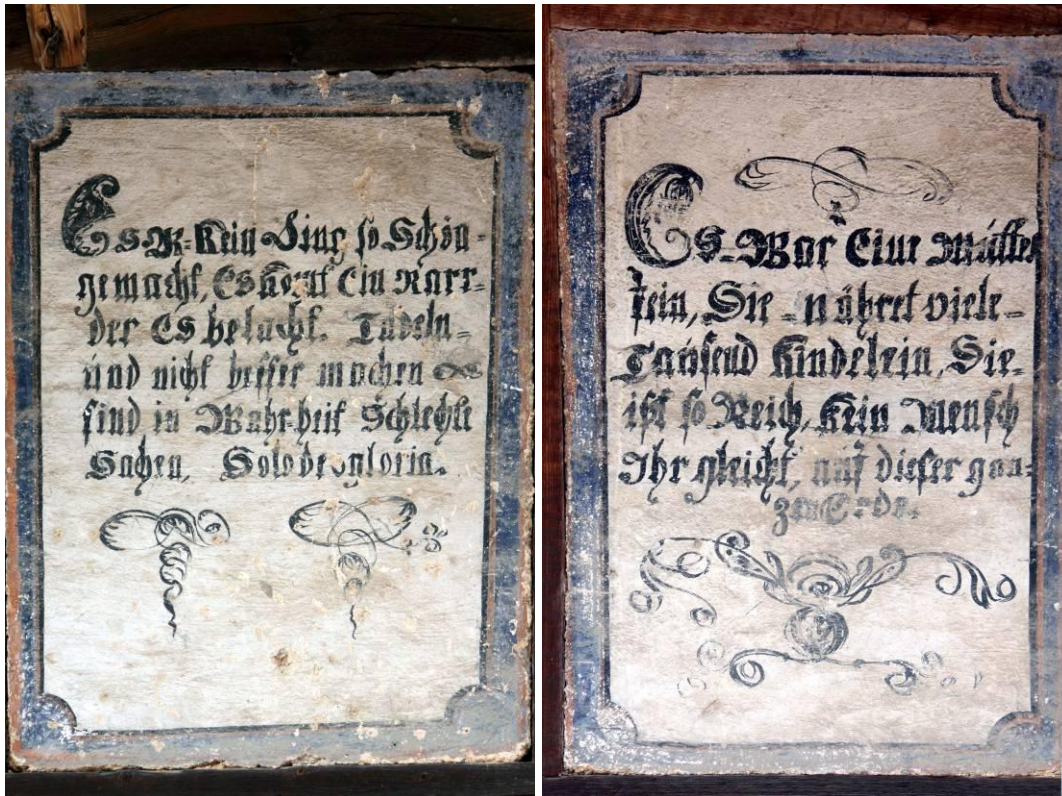 Es. Ist Kein Ding so Schön-
gemacht, Es kommt Ein Narr-
der Es belacht. Tadeln-
und nicht besser machen
sind in Wahr-heit Schlechte
Sachen, Solodeogloria.
Es-War Eine Mutter
fein, Sie-nähret viele-
Tausend Kindelein, Sie-
ist so Reich, Kein Mensch
Ihr gleicht, auf dieser gan-
zen Erde.